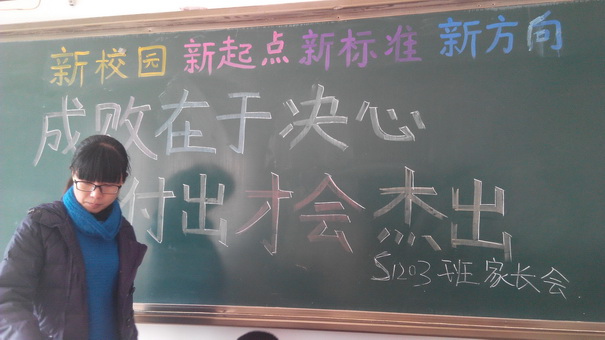 新校园 新起点 新标准 新方向
成败在于决心
付出才会杰出
S1203班家长会